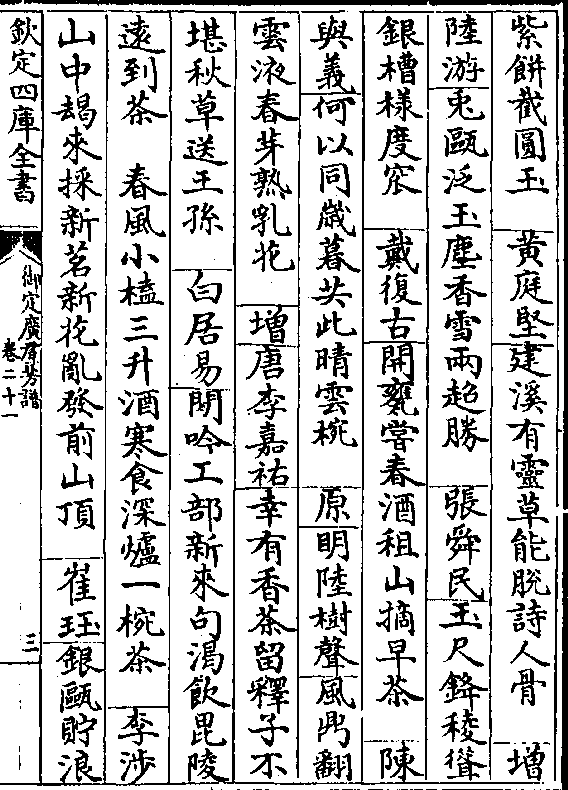 紫餅截圓玉　黄庭堅建溪有靈草能脫詩人骨　增
陸游兎甌泛玉塵香雪兩超勝　張舜民玉尺鋒稜聳
銀槽樣度窄　戴復古開甕嘗春酒租山摘早茶　陳
與義何以同歳暮共此晴雲椀　原明陸樹聲風鼎翻
雲液春芽熟乳花　增唐李嘉祐幸有香茶留釋子不
堪秋草送王孫　白居易閒吟工部新來句渴飲毘陵
遠到茶　春風小榼三升酒寒食深爐一椀茶　李涉
山中朅來採新茗新花亂發前山頂　崔珏銀甌貯浪
欽定四庫全書
御定廣羣芳譜
卷二十一
三